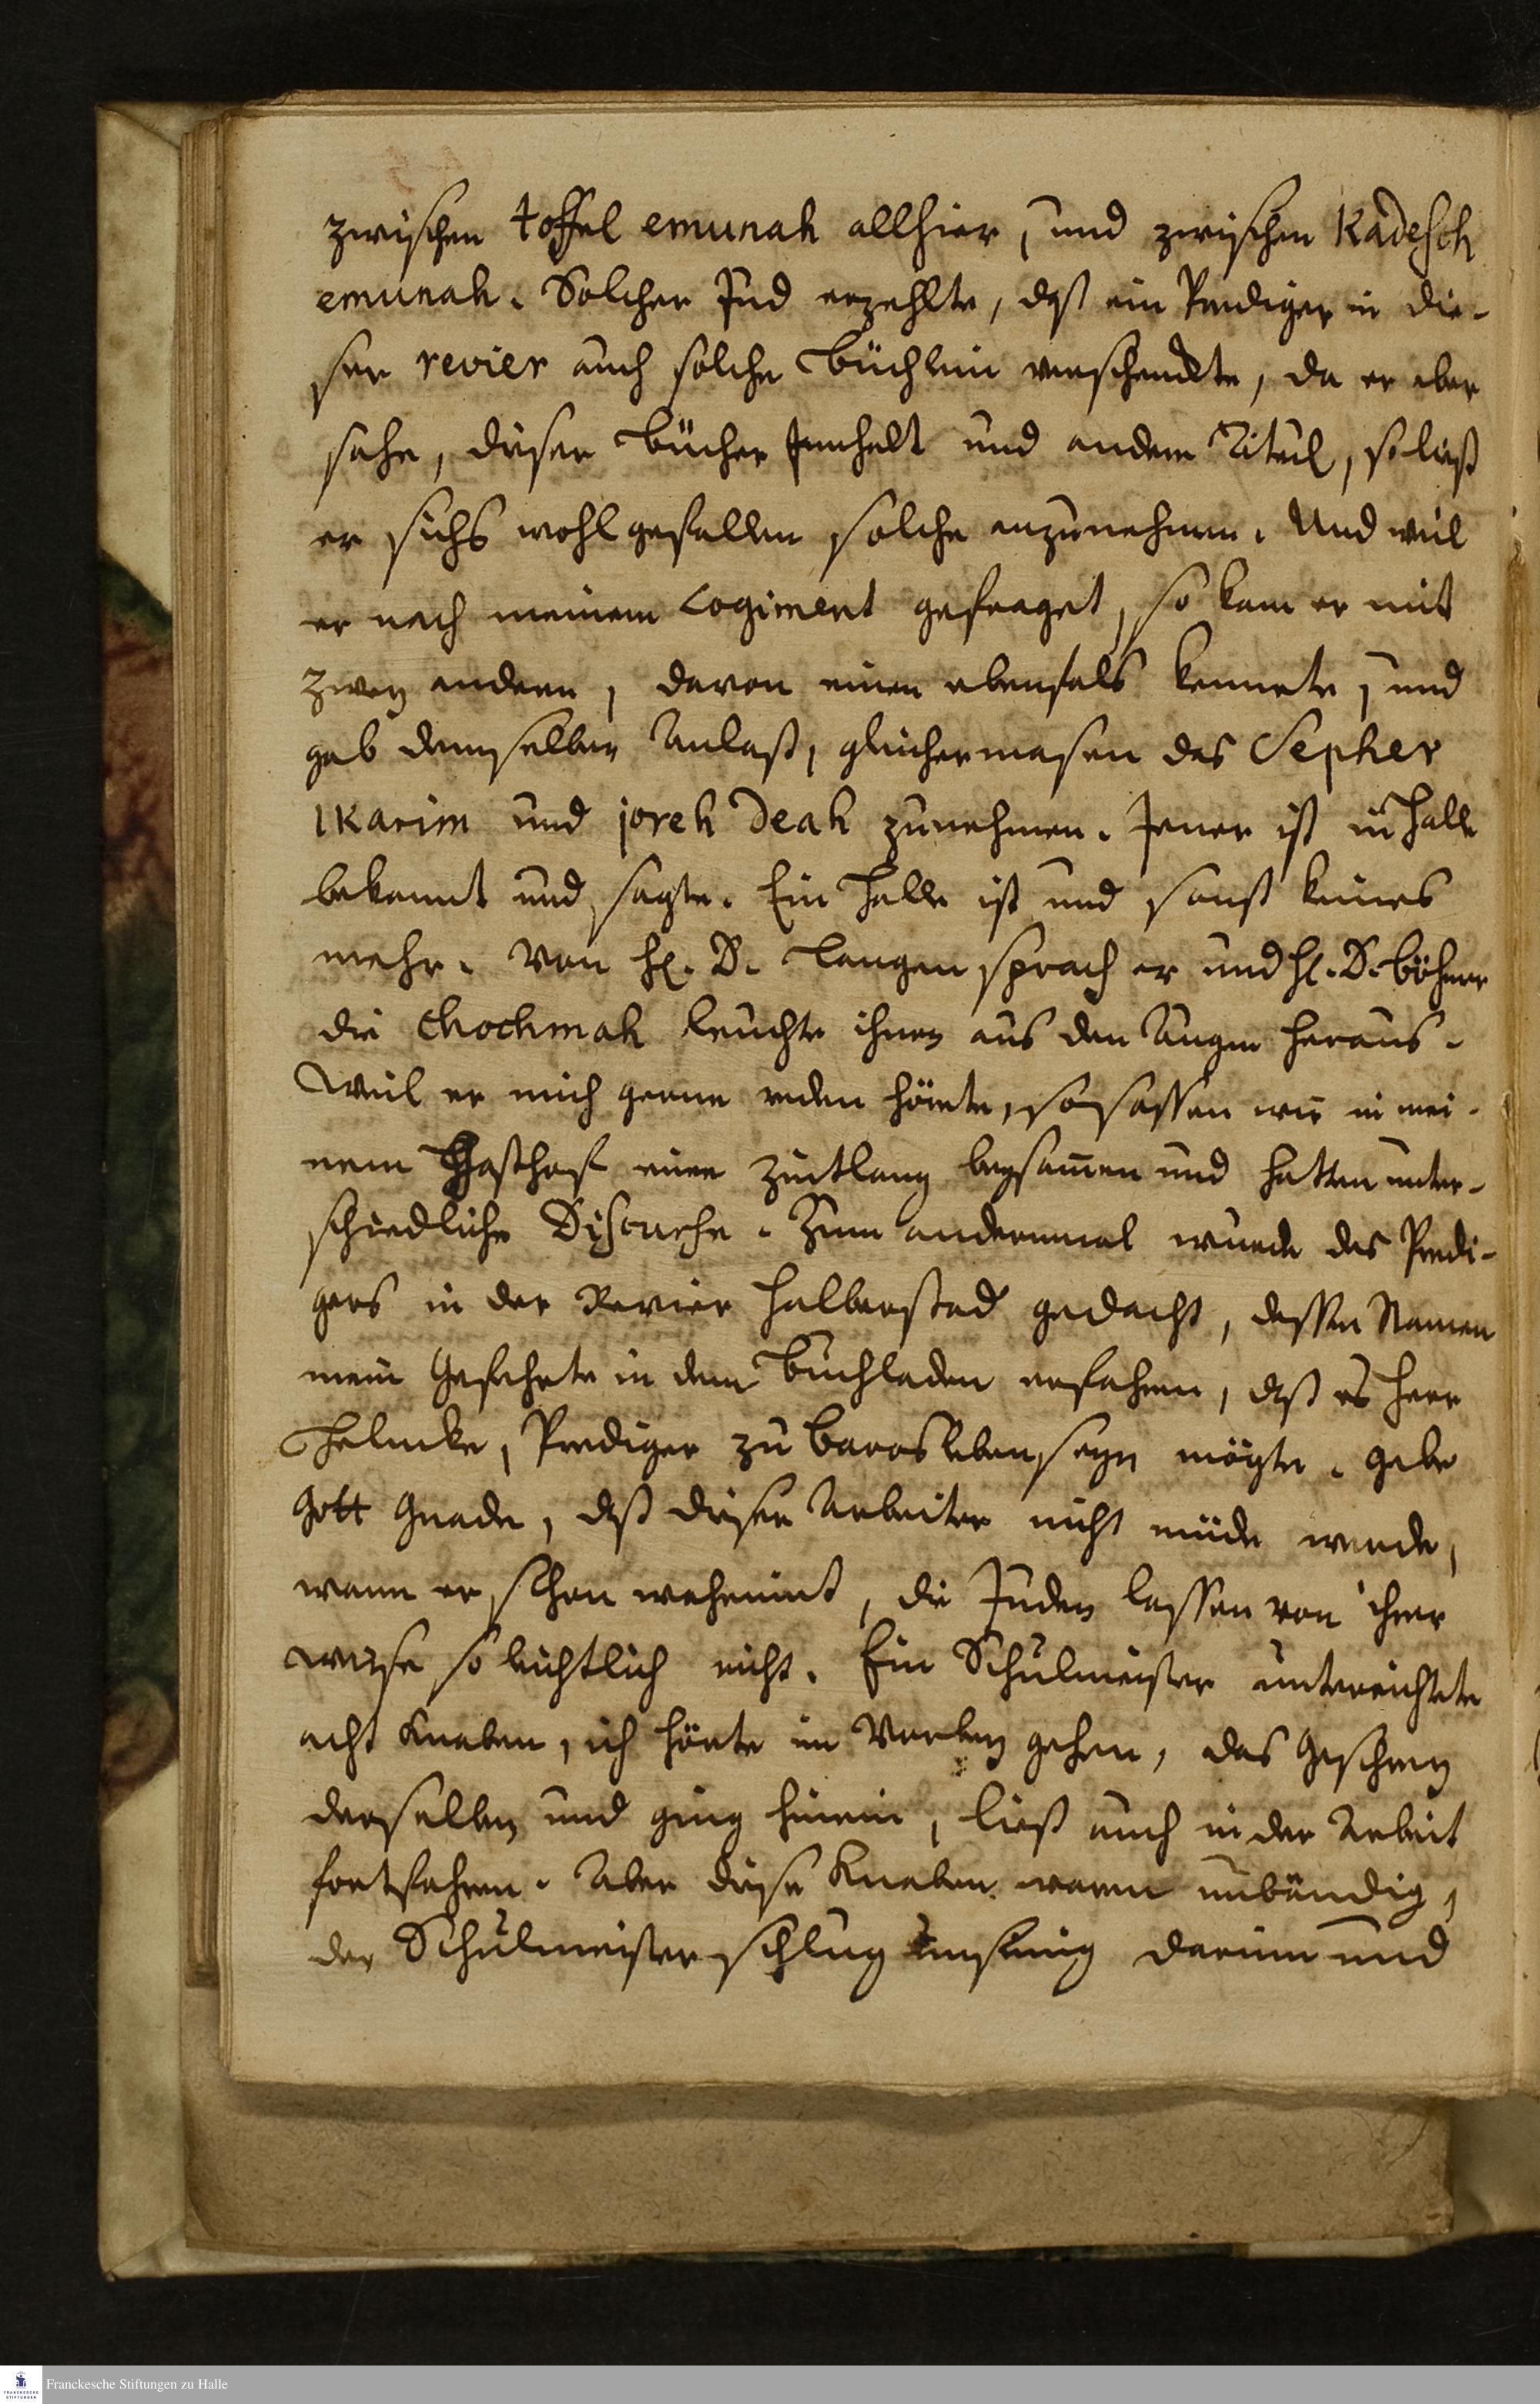 zwischen toffel emunah allhier, und zwischen Kadesch
emunah. Solcher Jud erzehlte, daß ein Prediger in die-
ser revier auch solche Büchlein verschenckte, da er aber
sahe, dieser Bücher Innhalt und andern Titul, so ließ
er sichs wohlgefallen solche anzunehmen. Und weil
er nach meinem Logiment gefraget, so kam er mit
zwey andern, davon einen ebenfals kennete, und
gab demselben Anlaß, gleichermasen das Sepher
Ikarim und joreh deah zunehmen. Jener ist in Halle
bekannt und sagte. Ein Halle ist und sonst keines
mehr. Von H. D. Langen sprach er und H. D. Böhmer
die Chochmah leuchte ihnen aus den Augen heraus.
Weil er mich gerne reden hörete, so sassen wir in mei-
nem Gasthof eine Zeitlang beysamen und hatten unter-
schiedliche Discurse. Zum andernmal wurde des Predi-
gers in der Revier Halberstad gedacht, dessen Namen
mein Gefehrte in dem Buchladen erfahren, daß es Herr
Prediger zu seyn mögte. Gebe
Gott Gnade, daß dieser Arbeiter nicht müde werde,
wann er schon wahrnimt, die Juden lassen von ihrer
Weise so leichtlich nicht. Ein Schulmeister unterrichtete
acht Knaben, ich hörte im Vorbey gehen, das Geschrey
derselben und ging hinein, ließ auch in der Arbeit
fortfahren. Aber diese Knaben waren unbändig,
der Schulmeister schlug unsinnig darein und
Franckesche Stiftungen zu Halle
FRANCKESCHE
STIFTUNGEN